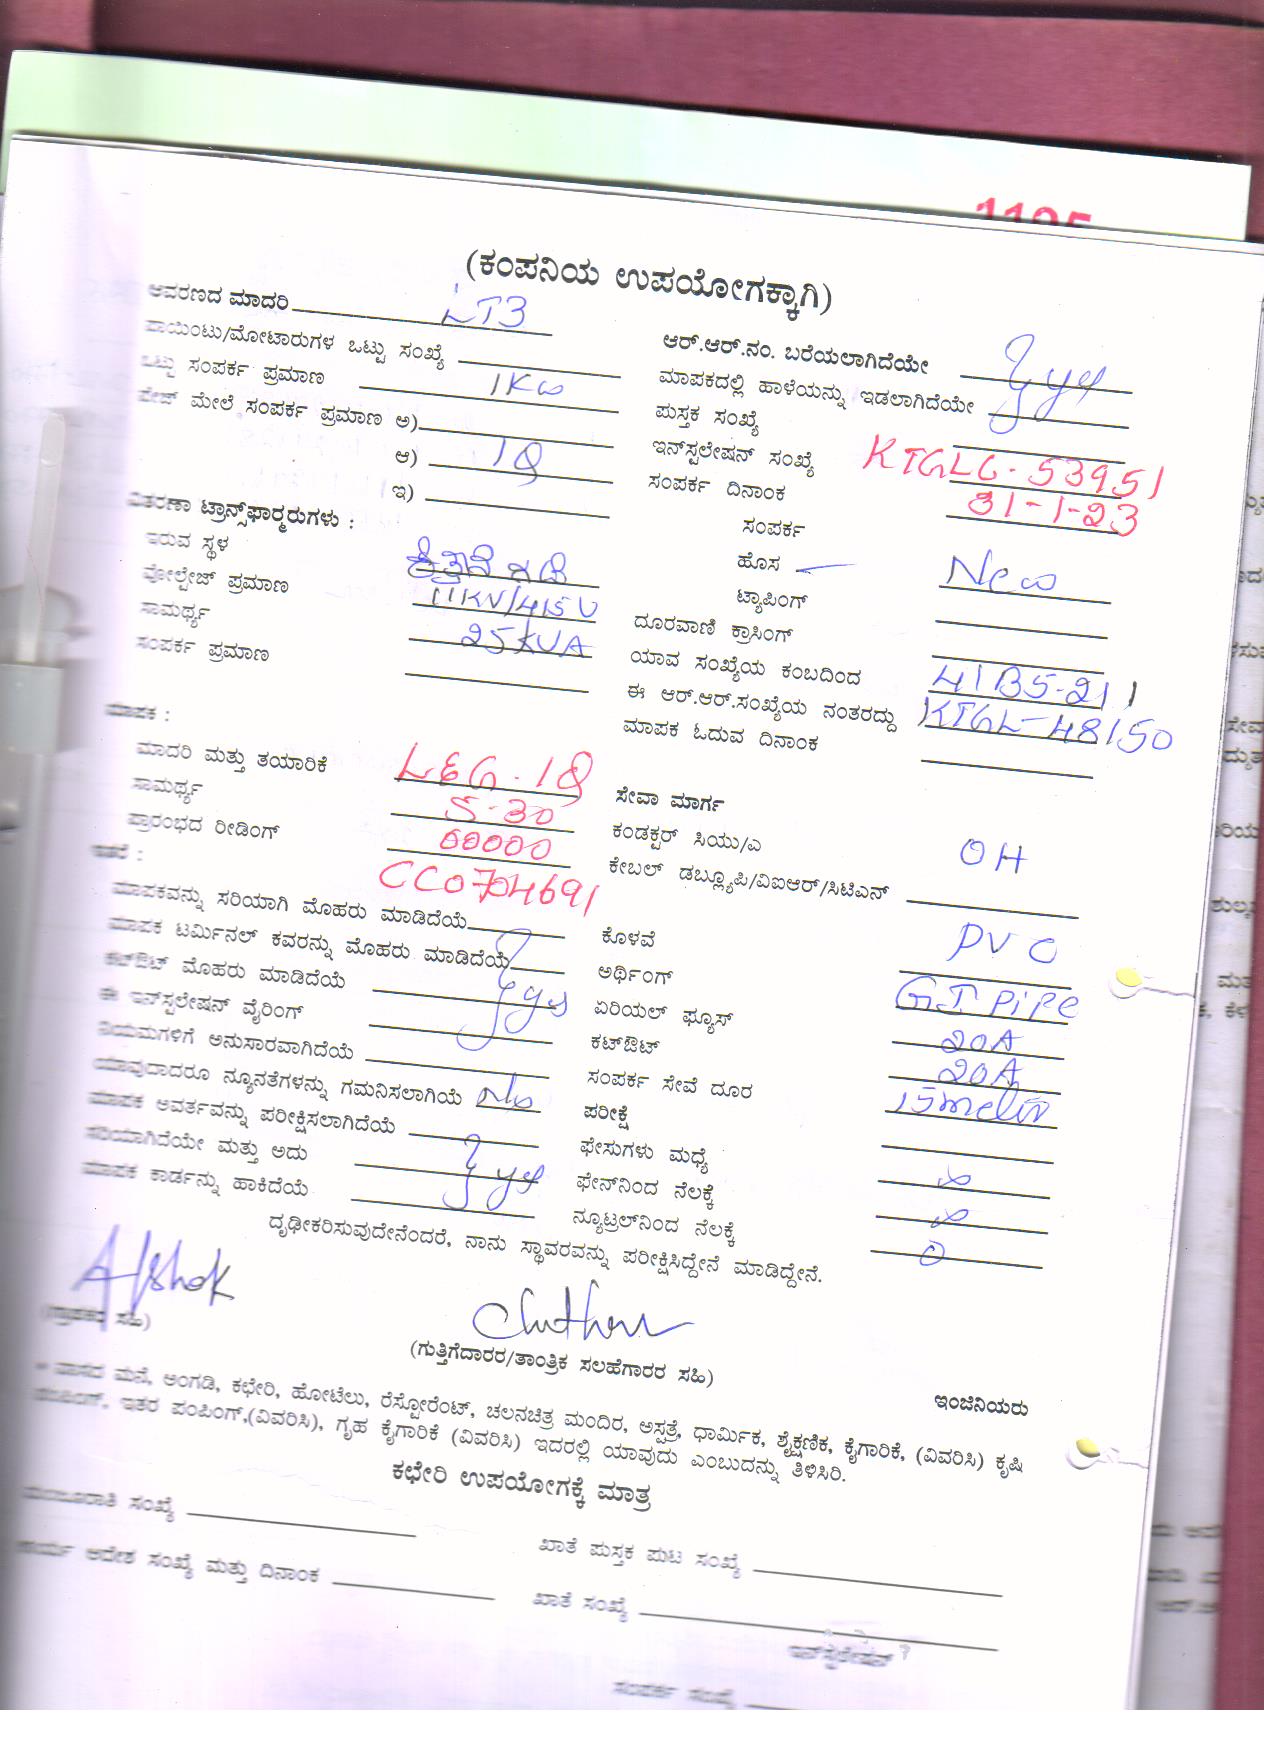 1195
(ಕಂಪನಿಯ ಉಪಯೋಗಕ್ಕಾಗಿ)
ಆವರಣದ ಮಾದರಿ LT3
ಪಾಯಿಂಟು/ಮೋಟಾರುಗಳ ಒಟ್ಟು ಸಂಖ್ಯೆ
ಒಟ್ಟು ಸಂಪರ್ಕ ಪ್ರಮಾಣ 1KW
ಪೇಜ್ ಮೇಲೆ ಸಂಪರ್ಕ ಪ್ರಮಾಣ ಅ)
ಆ) 1Φ
ಇ)
ವಿತರಣಾ ಟ್ರಾನ್ಸ್‌ಫಾರ್‍ಮರುಗಳು :
ಇರುವ ಸ್ಥಳ
ವೋಲ್ಟೇಜ್ ಪ್ರಮಾಣ 11KV/415V
ಸಾಮರ್ಥ್ಯ 25KVA
ಸಂಪರ್ಕ ಪ್ರಮಾಣ
ಮಾಪಕ :
ಮಾದರಿ ಮತ್ತು ತಯಾರಿಕೆ L&G-1Φ
ಸಾಮರ್ಥ್ಯ 5-30
ಪ್ರಾರಂಭದ ರೀಡಿಂಗ್ 00000
ಇತರೆ : CC0704691
ಮಾಪಕವನ್ನು ಸರಿಯಾಗಿ ಮೊಹರು ಮಾಡಿದೆಯೆ
ಮಾಪಕ ಟರ್ಮಿನಲ್ ಕವರನ್ನು ಮೊಹರು ಮಾಡಿದೆಯೆ
ಕಟ್‌ಔಟ್ ಮೊಹರು ಮಾಡಿದೆಯೆ yes
ಈ ಇನ್‌ಸ್ಟಲೇಷನ್ ವೈರಿಂಗ್
ನಿಯಮಗಳಿಗೆ ಅನುಸಾರವಾಗಿದೆಯೆ
ಯಾವುದಾದರೂ ನ್ಯೂನತೆಗಳನ್ನು ಗಮನಿಸಲಾಗಿಯೆ No
ಮಾಪಕ ಅವರ್ತವನ್ನು ಪರೀಕ್ಷಿಸಲಾಗಿದೆಯೆ
ಸರಿಯಾಗಿದೆಯೇ ಮತ್ತು ಅದು yes
ಮಾಪಕ ಕಾರ್ಡನ್ನು ಹಾಕಿದೆಯೆ
ಆರ್.ಆರ್.ನಂ. ಬರೆಯಲಾಗಿದೆಯೇ yes
ಮಾಪಕದಲ್ಲಿ ಹಾಳೆಯನ್ನು ಇಡಲಾಗಿದೆಯೇ
ಪುಸ್ತಕ ಸಂಖ್ಯೆ
ಇನ್‌ಸ್ಟಲೇಷನ್ ಸಂಖ್ಯೆ KTGLG-53951
ಸಂಪರ್ಕ ದಿನಾಂಕ 31-1-23
ಸಂಪರ್ಕ
ಹೊಸ New
ಟ್ಯಾಪಿಂಗ್
ದೂರವಾಣಿ ಕ್ರಾಸಿಂಗ್
ಯಾವ ಸಂಖ್ಯೆಯ ಕಂಬದಿಂದ 41B5-211
ಈ ಆರ್.ಆರ್.ಸಂಖ್ಯೆಯ ನಂತರದ್ದು KTGL-48150
ಮಾಪಕ ಓದುವ ದಿನಾಂಕ
ಸೇವಾ ಮಾರ್ಗ
ಕಂಡಕ್ಟರ್ ಸಿಯು/ಎ OH
ಕೇಬಲ್ ಡಬ್ಲ್ಯೂಪಿ/ವಿಐಆರ್/ಸಿಟಿಎನ್
ಕೊಳವೆ PVC
ಅರ್ಥಿಂಗ್ GI Pipe
ಏರಿಯಲ್ ಫ್ಯೂಸ್ 20A
ಕಟ್‌ಔಟ್ 20A
ಸಂಪರ್ಕ ಸೇವೆ ದೂರ 15meter
ಪರೀಕ್ಷೆ
ಫೇಸುಗಳು ಮಧ್ಯೆ ∞
ಫೇನ್‌ನಿಂದ ನೆಲಕ್ಕೆ ∞
ನ್ಯೂಟ್ರಲ್‌ನಿಂದ ನೆಲಕ್ಕೆ 0
ದೃಢೀಕರಿಸುವುದೇನೆಂದರೆ, ನಾನು ಸ್ಥಾವರವನ್ನು ಪರೀಕ್ಷಿಸಿದ್ದೇನೆ ಮಾಡಿದ್ದೇನೆ.
Ashok
(ಗ್ರಾಹಕರ ಸಹಿ)
(ಗುತ್ತಿಗೆದಾರರ/ತಾಂತ್ರಿಕ ಸಲಹೆಗಾರರ ಸಹಿ)
ಇಂಜಿನಿಯರು
* ವಾಸದ ಮನೆ, ಅಂಗಡಿ, ಕಛೇರಿ, ಹೋಟೆಲು, ರೆಸ್ಟೋರೆಂಟ್, ಚಲನಚಿತ್ರ ಮಂದಿರ, ಅಸ್ಪತ್ರೆ, ಧಾರ್ಮಿಕ, ಶೈಕ್ಷಣಿಕ, ಕೈಗಾರಿಕೆ, (ವಿವರಿಸಿ) ಕೃಷಿ
ಪಂಪಿಂಗ್, ಇತರ ಪಂಪಿಂಗ್,(ವಿವರಿಸಿ), ಗೃಹ ಕೈಗಾರಿಕೆ (ವಿವರಿಸಿ) ಇದರಲ್ಲಿ ಯಾವುದು ಎಂಬುದನ್ನು ತಿಳಿಸಿರಿ.
ಕಛೇರಿ ಉಪಯೋಗಕ್ಕೆ ಮಾತ್ರ
ಮಂಜೂರಾತಿ ಸಂಖ್ಯೆ
ಖಾತೆ ಪುಸ್ತಕ ಪುಟ ಸಂಖ್ಯೆ
ಕಾರ್ಯ ಆದೇಶ ಸಂಖ್ಯೆ ಮತ್ತು ದಿನಾಂಕ
ಖಾತೆ ಸಂಖ್ಯೆ
ಇನ್‌ಸ್ಟಲೇಷನ್
ಸಂಪರ್ಕ ಸಂಖ್ಯೆ